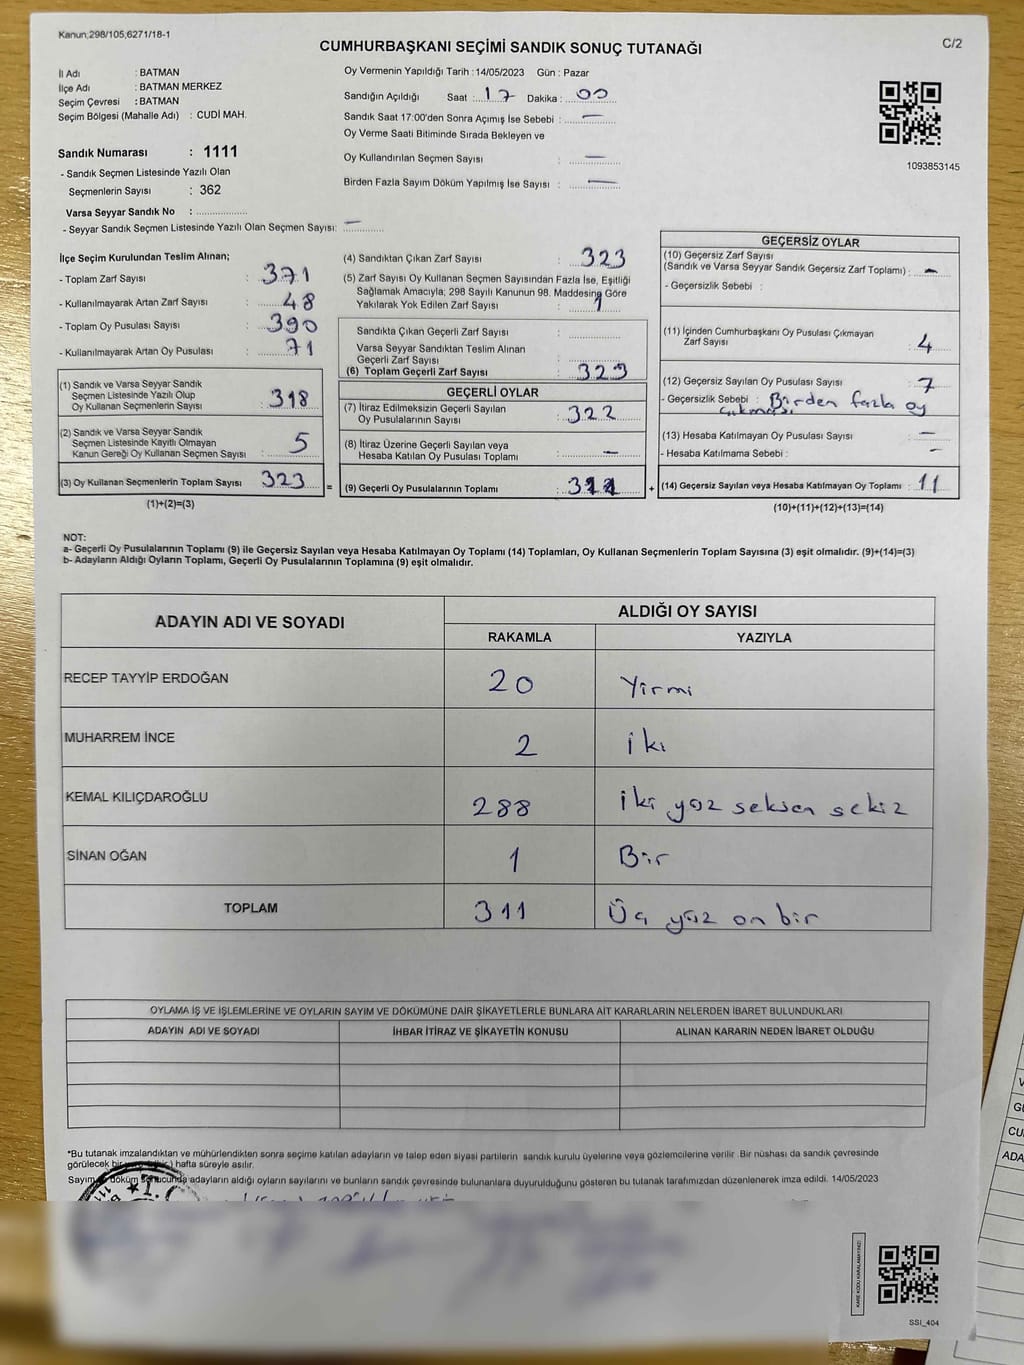 Kanun;298/105,6271/18-1
C/2
CUMHURBAŞKANI SEÇİMİ SANDIK SONUÇ TUTANAĞI
İl Adı : BATMAN
İlçe Adı : BATMAN MERKEZ
Seçim Çevresi : BATMAN
Seçim Bölgesi (Mahalle Adı) : CUDİ MAH.
Sandık Numarası : 1111
- Sandık Seçmen Listesinde Yazılı Olan
Seçmenlerin Sayısı : 362
Varsa Seyyar Sandık No :
- Seyyar Sandık Seçmen Listesinde Yazılı Olan Seçmen Sayısı: —
Oy Vermenin Yapıldığı Tarih : 14/05/2023 Gün : Pazar
Sandığın Açıldığı Saat : 17 Dakika : 00
Sandık Saat 17:00'den Sonra Açımış İse Sebebi : —
Oy Verme Saati Bitiminde Sırada Bekleyen ve
Oy Kullandırılan Seçmen Sayısı : —
Birden Fazla Sayım Döküm Yapılmış İse Sayısı : —
1093853145
İlçe Seçim Kurulundan Teslim Alınan;
- Toplam Zarf Sayısı : 371
- Kullanılmayarak Artan Zarf Sayısı : 48
- Toplam Oy Pusulası Sayısı : 390
- Kullanılmayarak Artan Oy Pusulası : 71
(1) Sandık ve Varsa Seyyar Sandık
Seçmen Listesinde Yazılı Olup
Oy Kullanan Seçmenlerin Sayısı : 318
(2) Sandık ve Varsa Seyyar Sandık
Seçmen Listesinde Kayıtlı Olmayan
Kanun Gereği Oy Kullanan Seçmen Sayısı : 5
(3) Oy Kullanan Seçmenlerin Toplam Sayısı : 323
(1)+(2)=(3)
(4) Sandıktan Çıkan Zarf Sayısı : 323
(5) Zarf Sayısı Oy Kullanan Seçmen Sayısından Fazla İse, Eşitliği
Sağlamak Amacıyla; 298 Sayılı Kanunun 98. Maddesine Göre
Yakılarak Yok Edilen Zarf Sayısı : 1
Sandıkta Çıkan Geçerli Zarf Sayısı :
Varsa Seyyar Sandıktan Teslim Alınan
Geçerli Zarf Sayısı :
(6) Toplam Geçerli Zarf Sayısı : 323
=
GEÇERLİ OYLAR
(7) İtiraz Edilmeksizin Geçerli Sayılan
Oy Pusulasının Sayısı : 322
(8) İtiraz Üzerine Geçerli Sayılan veya
Hesaba Katılan Oy Pusulası Toplamı : —
(9) Geçerli Oy Pusulalarının Toplamı :
+
GEÇERSİZ OYLAR
(10) Geçersiz Zarf Sayısı
(Sandık ve Varsa Seyyar Sandık Geçersiz Zarf Toplamı) : —
- Geçersizlik Sebebi :
(11) İçinden Cumhurbaşkanı Oy Pusulası Çıkmayan
Zarf Sayısı : 4
(12) Geçersiz Sayılan Oy Pusulası Sayısı : 7
- Geçersizlik Sebebi : Birden fazla oy
çıkması
(13) Hesaba Katılmayan Oy Pusulası Sayısı : —
- Hesaba Katılmama Sebebi : —
(14) Geçersiz Sayılan veya Hesaba Katılmayan Oy Toplamı : 11
(10)+(11)+(12)+(13)=(14)
NOT:
a- Geçerli Oy Pusulalarının Toplamı (9) ile Geçersiz Sayılan veya Hesaba Katılmayan Oy Toplamı (14) Toplamları, Oy Kullanan Seçmenlerin Toplam Sayısına (3) eşit olmalıdır. (9)+(14)=(3)
b- Adayların Aldığı Oyların Toplamı, Geçerli Oy Pusulalarının Toplamına (9) eşit olmalıdır.
ADAYIN ADI VE SOYADI
ALDIĞI OY SAYISI
RAKAMLA YAZIYLA
RECEP TAYYİP ERDOĞAN 20 Yirmi
MUHARREM İNCE 2 İki
KEMAL KILIÇDAROĞLU 288 İki yüz seksen sekiz
SİNAN OĞAN 1 Bir
TOPLAM 311 Üç yüz on bir
OYLAMA İŞ VE İŞLEMLERİNE VE OYLARIN SAYIM VE DÖKÜMÜNE DAİR ŞİKAYETLERLE BUNLARA AİT KARARLARIN NELERDEN İBARET BULUNDUKLARI
ADAYIN ADI VE SOYADI İHBAR İTİRAZ VE ŞİKAYETİN KONUSU ALINAN KARARIN NEDEN İBARET OLDUĞU
*Bu tutanak imzalandıktan ve mühürlendikten sonra seçime katılan adayların ve talep eden siyasi partilerin sandık kurulu üyelerine veya gözlemcilerine verilir .Bir nüshası da sandık çevresinde
görülecek bir hafta süreyle asılır.
Sayım döküm sonucunda adayların aldığı oyların sayılarını ve bunların sandık çevresinde bulunanlara duyurulduğunu gösteren bu tutanak tarafımızdan düzenlenerek imza edildi. 14/05/2023
KARE KODU KARALAMAYINIZ!
SSI_404
ADA